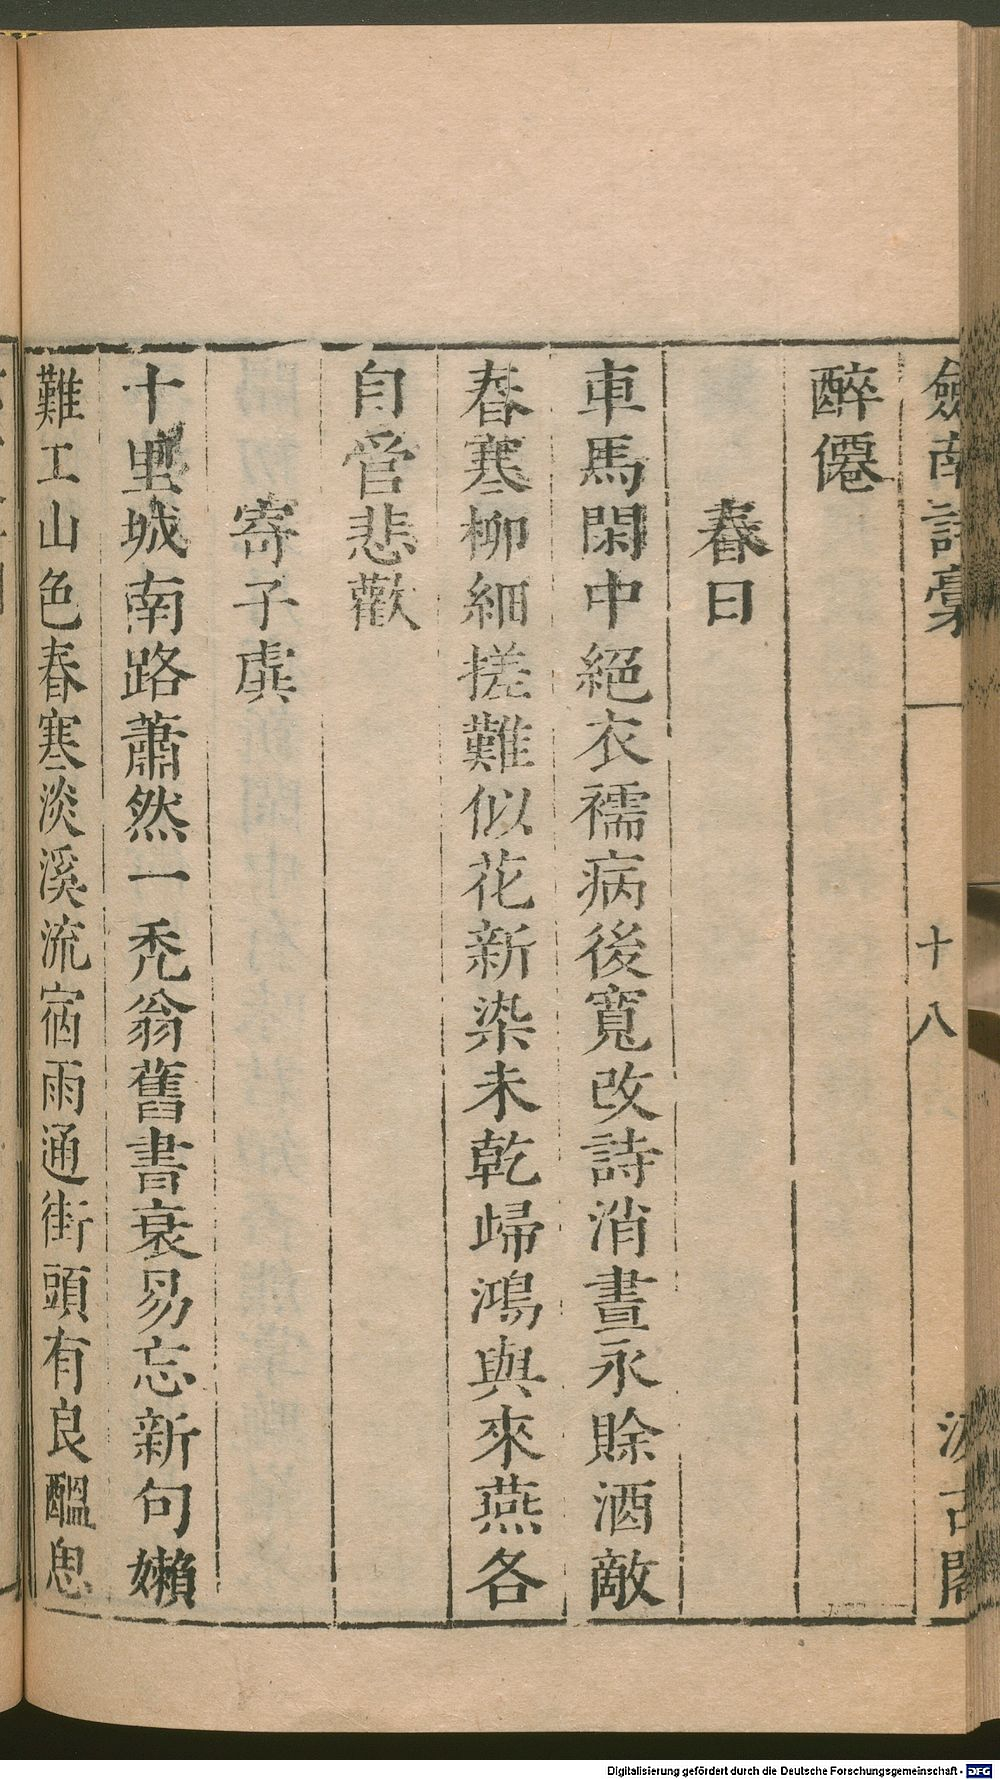 劔南詩稾
十八
汲古閣
醉僊
春日
車馬閑中絕衣襦病後寬改詩消晝永賒酒敵
春寒柳細搓難似花新染未乾歸鴻與來燕各
自管悲歡
寄子虡
十里城南路蕭然一禿翁舊書衰易忘新句嬾
難工山色春寒淡溪流宿雨通街頭有良醞思
Digitalisierung gefördert durch die Deutsche Forschungsgemeinschaft - DFG